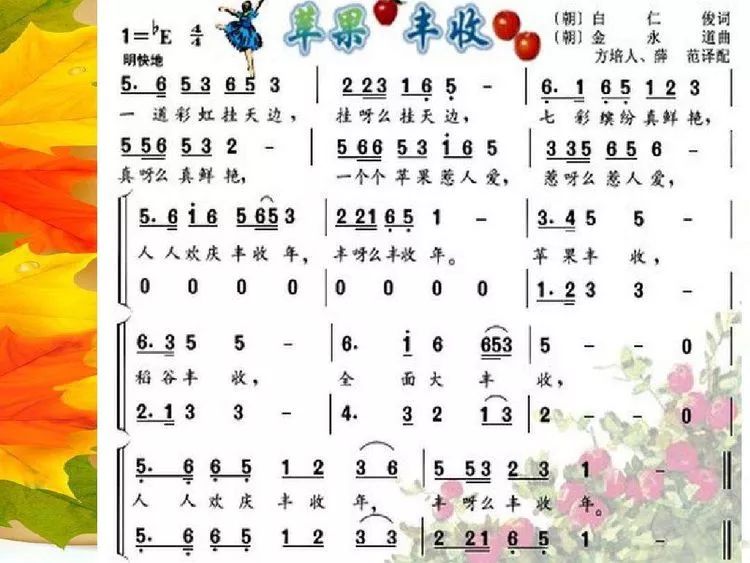 苹果丰收
1=♭E 4/4
明快地
(朝)白仁俊词
(朝)金永道曲
方培人、薛范译配
5. 6 5 3 6 5 3 | 2 2 3 1 6 5 - | 6. 1 6 5 1 2 3
一道彩虹挂天边, 挂呀么挂天边, 七彩缤纷真鲜艳,
5 5 6 5 3 2 - | 5 6 6 5 3 1 6 5 | 3 3 5 6 5 6 -
真呀么真鲜艳, 一个个苹果惹人爱, 惹呀么惹人爱,
5. 6 i 6 5 6 5 3 | 2 2 1 6 5 1 - | 3. 4 5 5 -
人人欢庆丰收年, 丰呀么丰收年。 苹果丰收,
0 0 0 0 | 0 0 0 0 | 1. 2 3 3 -
6. 3 5 5 - | 6. i 6 6 5 3 | 5 - - 0
稻谷丰收, 全面大丰收,
2. 1 3 3 - | 4. 3 2 1 3 | 2 - - 0
5. 6 6 5 1 2 3 6 | 5 5 3 2 3 1 -
人人欢庆丰收年, 丰呀么丰收年。
5. 6 6 5 1 2 1 6 | 2 2 1 6 5 1 -